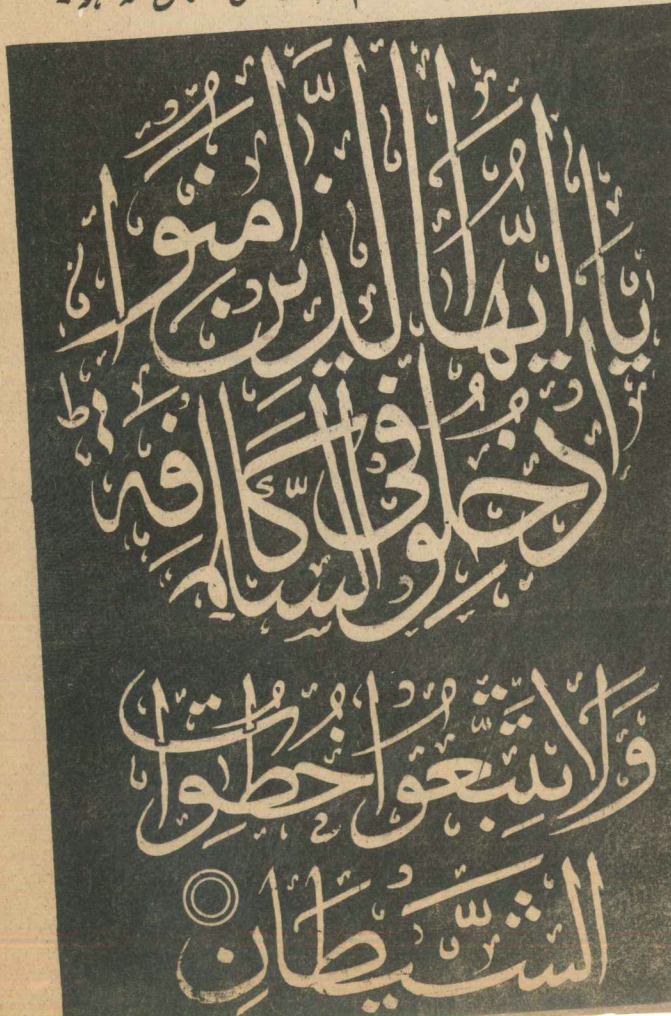 يَا أَيُّهَا الَّذِينَ اٰمَنُوا
ادْخُلُوا فِي السِّلْمِ كَافَّةً
وَلَا تَتَّبِعُوا خُطُوَاتِ
الشَّيْطَانِ